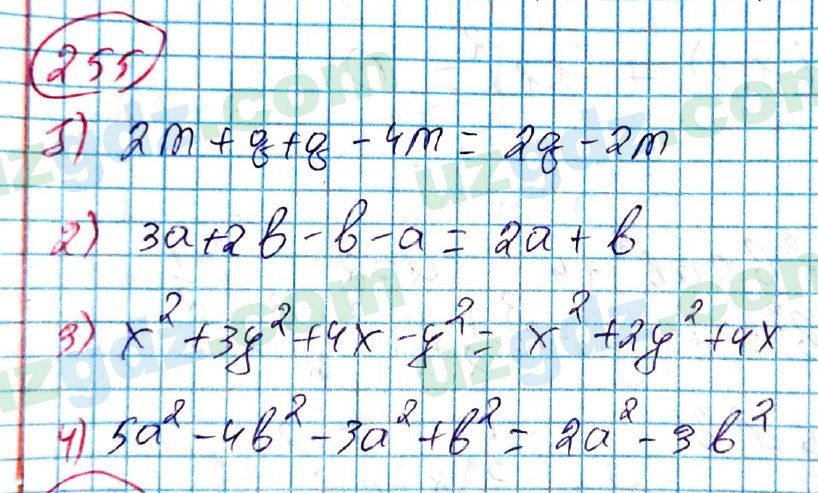 255
1) 2m + q + q - 4m = 2q - 2m
2) 3a + 2b - b - a = 2a + b
3) x² + 3y² + 4x - y² = x² + 2y² + 4x
4) 5a² - 4b² - 3a² + b² = 2a² - 3b²
uzgdz.com
uzgdz.com
uzgdz.com
uzgdz.com